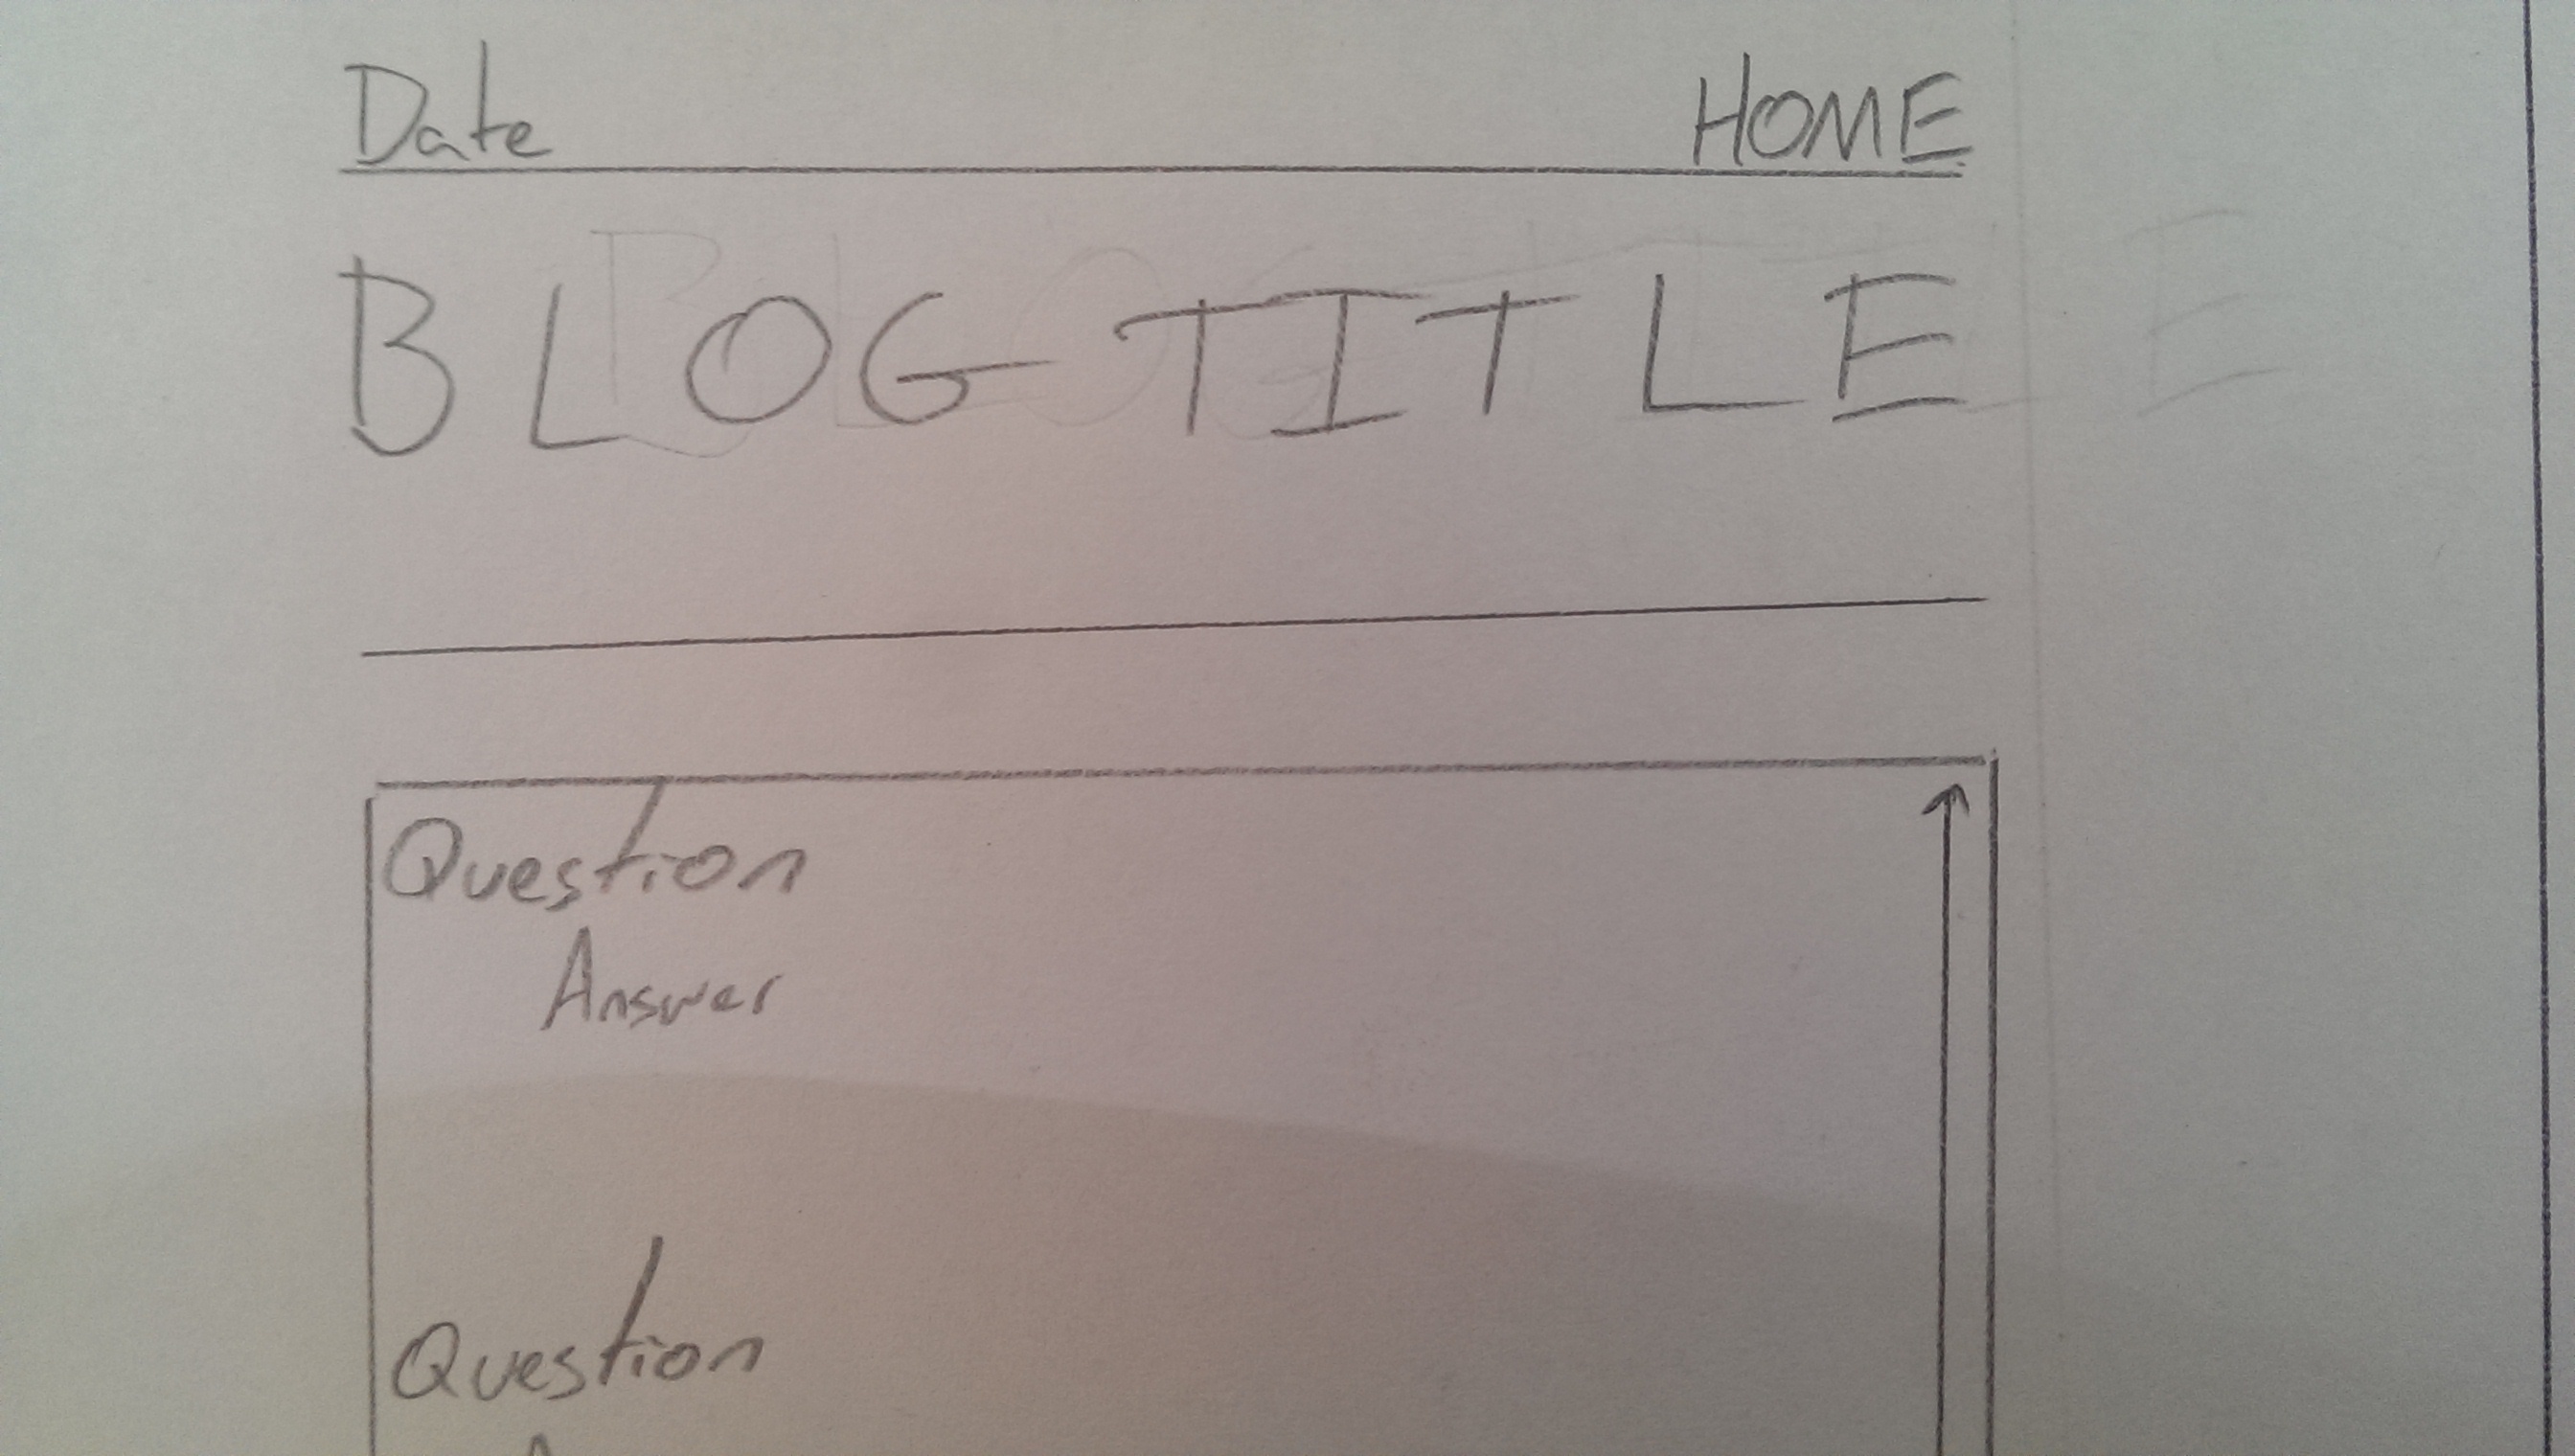 Date HOME
BLOG TITLE
Question
Answer
Question